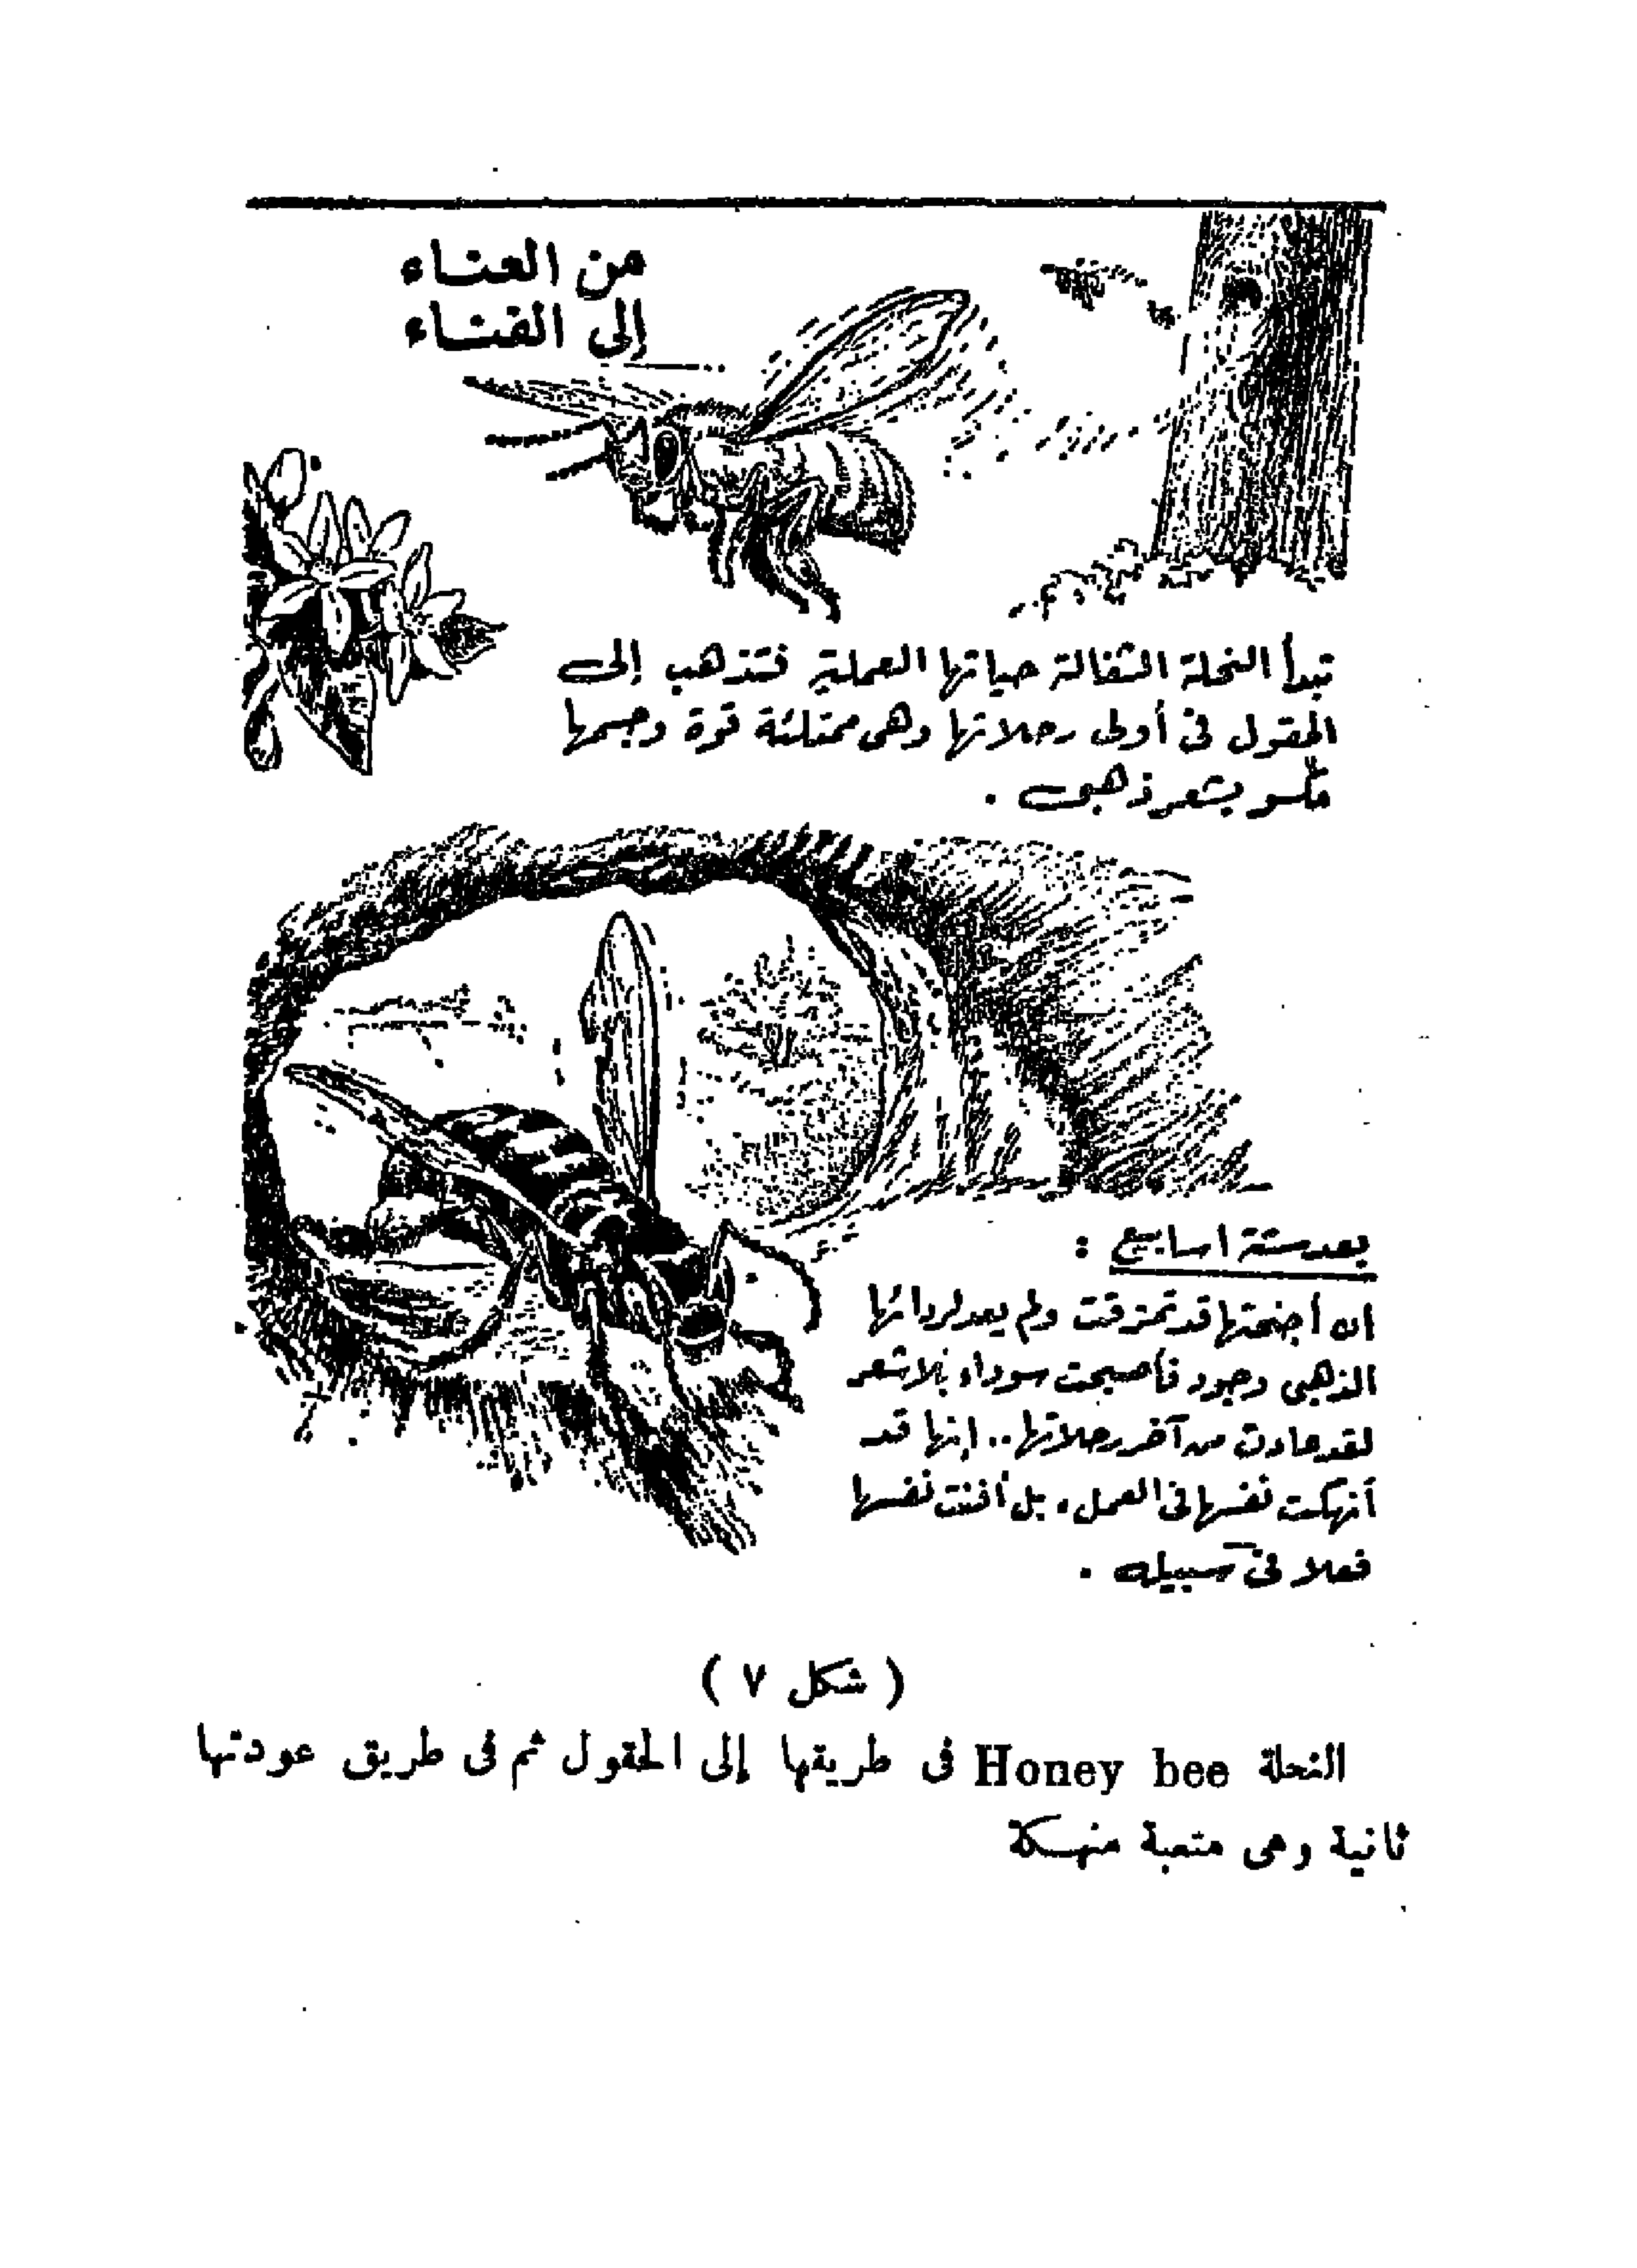 من العناء
إلى الفناء
تبدأ النحلة الشغالة حياتها العملية فتذهب إلى
الحقول فى أولى رحلاتها وهى ممتلئة قوة وجسمها
مكسو بشعر ذهبى .
بعد ستة اسابيع :
ان أجنحتها قد تمزقت ولم يعد لردائها
الذهبى وجود فأصبحت سوداء بلا شعر
لقد عادت من آخر رحلاتها .. إنها قد
أنهكت نفسها فى العمل ، بل أفنت نفسها
فعلا فى سبيله .
( شكل ٧ )
النحلة Honey bee فى طريقها إلى الحقول ثم فى طريق عودتها
ثانية وهى متعبة منهكة